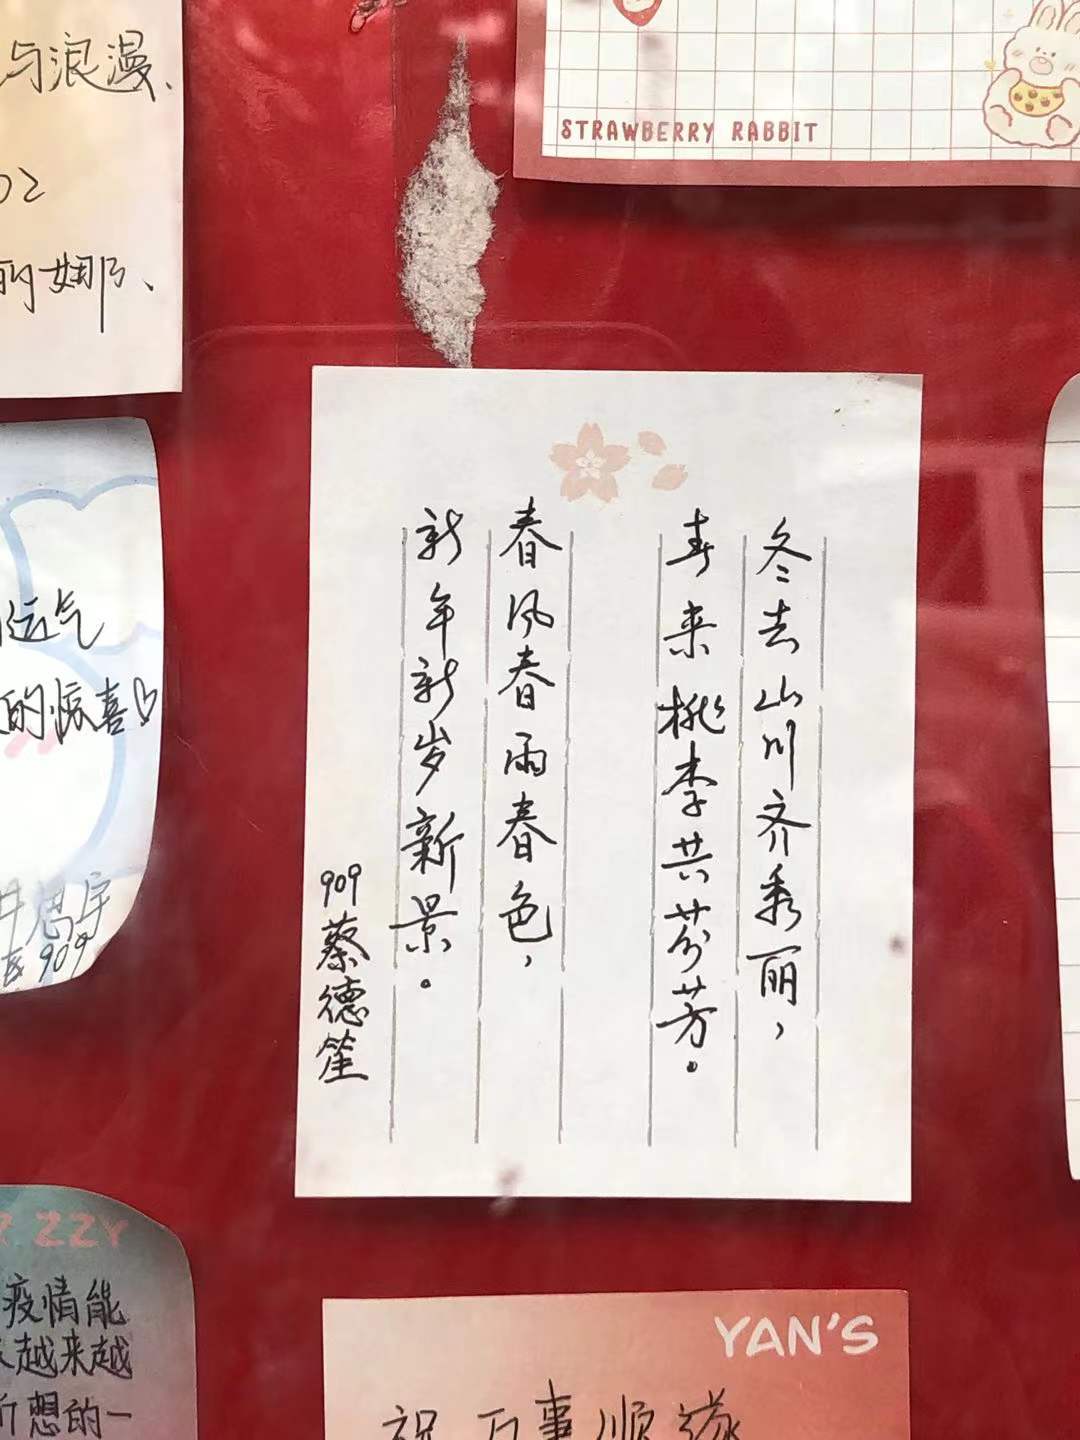 与浪漫、
02
的娜、
STRAWBERRY RABBIT
冬去山川齐秀丽，
春来桃李共芬芳。
春风春雨春色，
新年新岁新景。
909蔡德笙
运气
的惊喜♡
思宇
909
ZZY
疫情能
越来越
所想的一
YAN'S
祝万事顺遂